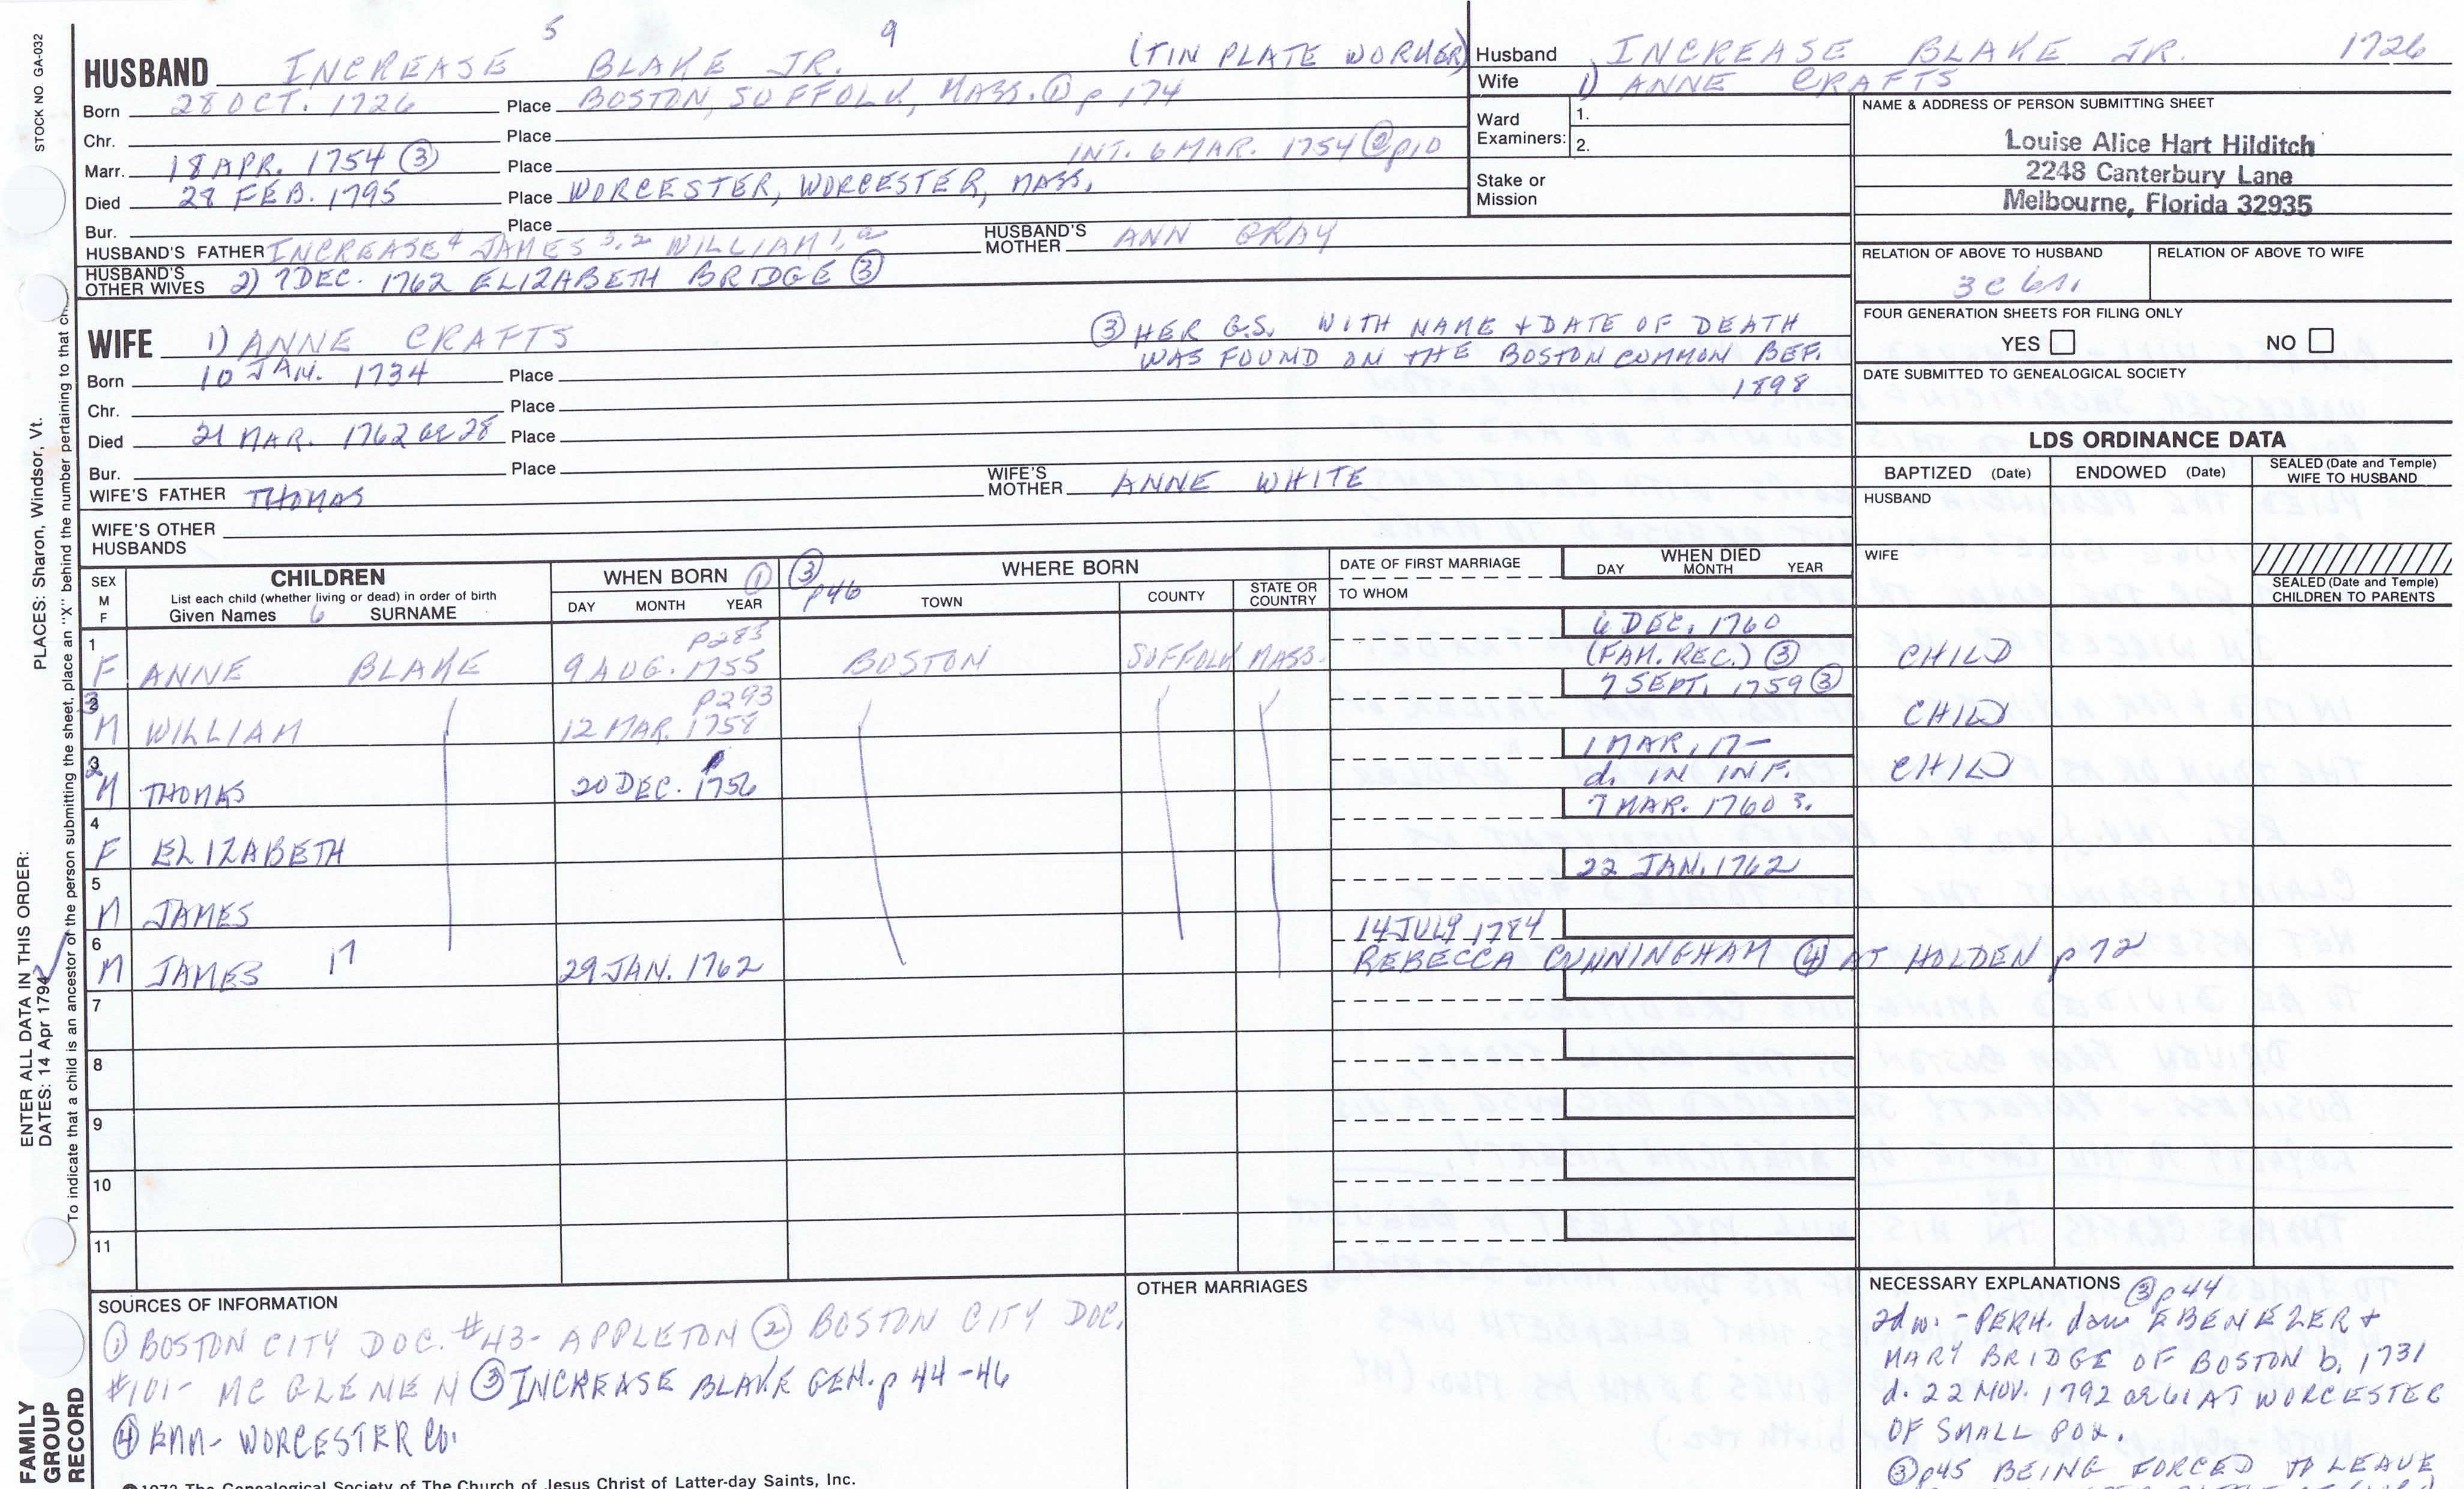 STOCK NO. GA-032
PLACES: Sharon, Windsor, Vt.
ENTER ALL DATA IN THIS ORDER:
DATES: 14 Apr 1794
To indicate that a child is an ancestor of the person submitting the sheet, place an "X" behind the number pertaining to that
FAMILY GROUP RECORD
5 9
HUSBAND INCREASE BLAKE JR. (TIN PLATE WORKER)
Born 28 OCT. 1726 Place BOSTON, SUFFOLK, MASS. ① p 174
Chr. Place
INT. 6 MAR. 1754 ② p10
Marr. 18 APR. 1754 ③ Place
Died 28 FEB. 1795 Place WORCESTER, WORCESTER, MASS.
Bur. Place
HUSBAND'S FATHER INCREASE 4 JAMES 3,2 WILLIAM 1, HUSBAND'S MOTHER ANN GRAY
HUSBAND'S OTHER WIVES 2) 7 DEC. 1762 ELIZABETH BRIDGE ③
WIFE 1) ANNE CRAFTS
③ HER G.S. WITH NAME + DATE OF DEATH
WAS FOUND ON THE BOSTON COMMON BEF.
1898
Born 10 JAN. 1734 Place
Chr. Place
Died 21 MAR. 1762 ae 28 Place
Bur. Place
WIFE'S FATHER THOMAS WIFE'S MOTHER ANNE WHITE
WIFE'S OTHER HUSBANDS
Husband INCREASE BLAKE JR. 1726
Wife 1) ANNE CRAFTS
Ward Examiners: 1. 2.
Stake or Mission
NAME & ADDRESS OF PERSON SUBMITTING SHEET
Louise Alice Hart Hilditch
2248 Canterbury Lane
Melbourne, Florida 32935
RELATION OF ABOVE TO HUSBAND RELATION OF ABOVE TO WIFE
3 c 6 r.
FOUR GENERATION SHEETS FOR FILING ONLY
YES NO
DATE SUBMITTED TO GENEALOGICAL SOCIETY
LDS ORDINANCE DATA
BAPTIZED (Date) ENDOWED (Date) SEALED (Date and Temple) WIFE TO HUSBAND
HUSBAND
WIFE
SEALED (Date and Temple) CHILDREN TO PARENTS
SEX M F
CHILDREN
List each child (whether living or dead) in order of birth
Given Names 6 SURNAME
WHEN BORN ①
DAY MONTH YEAR
③ p46 WHERE BORN
TOWN COUNTY STATE OR COUNTRY
DATE OF FIRST MARRIAGE
TO WHOM
WHEN DIED
DAY MONTH YEAR
6 DEC. 1760
1 P283
F ANNE BLAKE 9 AUG. 1755 BOSTON SUFFOLK MASS. (FAM. REC.) ③ CHILD
7 SEPT. 1759 ③
2 3 P293
M WILLIAM 12 MAR. 1758 CHILD
1 MAR, 17—
3 2
M THOMAS 20 DEC. 1756 d. IN INF. CHILD
7 MAR. 1760 3.
4
F ELIZABETH
22 JAN. 1762
5
M JAMES
14 JULY 1784
6
M JAMES 17 29 JAN. 1762 REBECCA CUNNINGHAM ④ AT HOLDEN p 72
7
8
9
10
11
SOURCES OF INFORMATION
① BOSTON CITY DOC. #43- APPLETON ② BOSTON CITY DOC.
#101- MC GLENEN ③ INCREASE BLAKE GEN. p 44-46
④ WORCESTER CO.
OTHER MARRIAGES
NECESSARY EXPLANATIONS ③ p44
2d w. - PERH. dau EBENEZER +
MARY BRIDGE OF BOSTON b. 1731
d. 22 NOV. 1792 ae 61 AT WORCESTER
OF SMALL POX.
③ p45 BEING FORCED TO LEAVE
©1972 The Genealogical Society of The Church of Jesus Christ of Latter-day Saints, Inc.